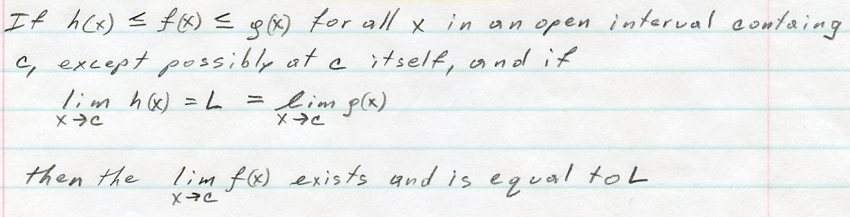 If h(x) ≤ f(x) ≤ g(x) for all x in an open interval containg
c, except possibly at c itself, and if
lim h(x) = L = lim g(x)
x→c x→c
then the lim f(x) exists and is equal to L
x→c